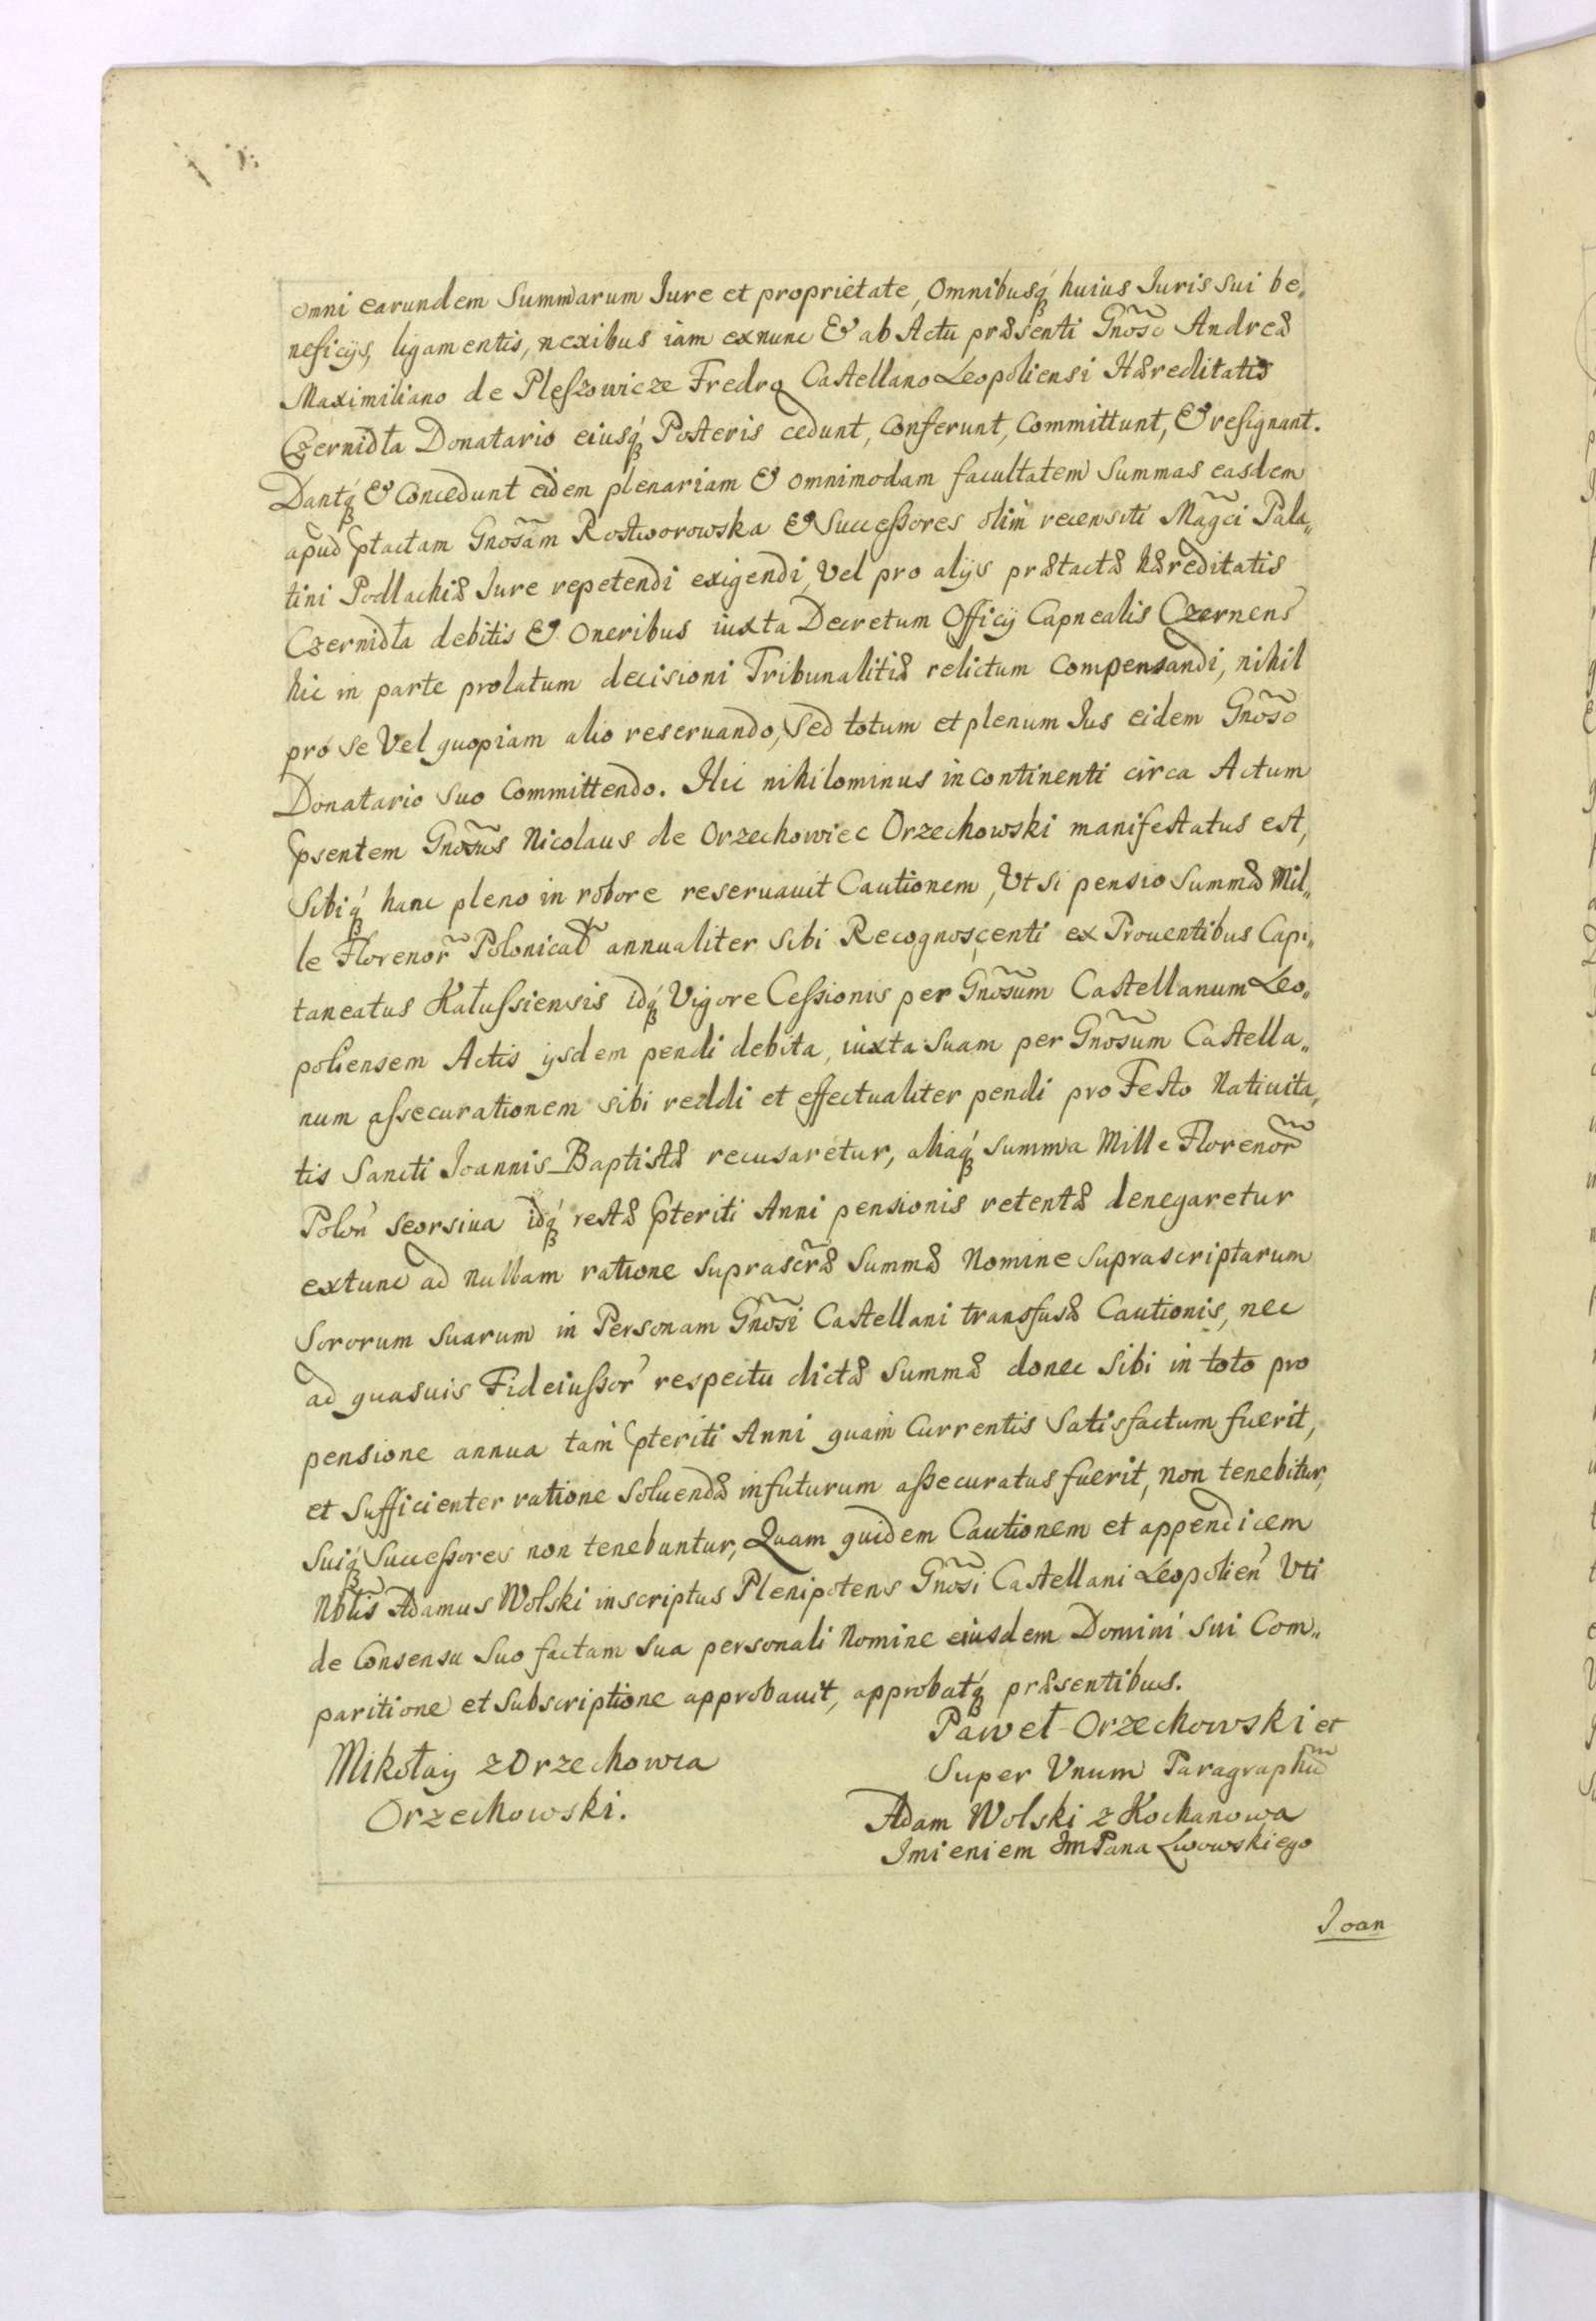 omni earundem Summarum Jure et proprietate, Omnibusq́ꝫ huius Juris sui be„
neficijs, ligamentis, nexibus iam exnunc & ab Actu præsenti Gnõso Andreæ
Maximiliano de Pleszowicze Fredro Castellano Leopoliensi Hæreditatis
Czernidła Donatario eiusq́ꝫ Posteris cedunt, Conferunt, Committunt, & resignant.
Dantq́ꝫ & Concedunt eidem plenariam & omnimodam facultatem Summas easdem
apud ꝑtactam Gnosãm Rostworowska & Successores olim recensiti Magc̃i Pala„
tini Podlachiæ Jure repetendi exigendi, Vel pro alijs prætactæ hæreditatis
Czernidła debitis & Oneribus iuxta Decretum Officij Capnealis Czernens̉
hic in parte prolatum decisioni Tribunalitiæ relictum Compensandi, nihil
pro se Vel quopiam alio reseruando, Sed totum et plenum Jus eidem Gnõso
Donatario Suo Committendo. Hic nihilominus in continenti circa Actum
ꝑsentem Gnosus̃ Nicolaus de Orzechowiec Orzechowski manifestatus est,
Sibiq́ꝫ hanc pleno in robore reseruauit Cautionem, Vt si pensio Summæ Mil„
le Florenor̃ Polonical̃ annualiter Sibi Recognoscenti ex Prouentibus Capi„
taneatus Kałussiensis idq́ꝫ Vigore Cessionis per Gnõsum Castellanum Leo„
poliensem Actis ijsdem pendi debita, iuxta Suam per Gnõsum Castella„
num assecurationem sibi reddi et effectualiter pendi pro Festo Natiuita„
tis Sancti Joannis Baptistæ recusaretur, aliaq́ꝫ Summa Mille Florenor̃
Polon̉ Seorsiua idq́ꝫ restæ ꝑteriti Anni pensionis retentæ denegaretur
extunc ad nullam ratione Suprascr̃æ Summæ Nomine Suprascriptarum
Sororum Suarum in Personam Gnõsi Castellani transfusæ Cautionis, nec
ad quasuis Fideiussor̉ respectu dictæ Summæ donec Sibi in toto pro
pensione annua tam ꝑteriti Anni quam Currentis Satisfactum fuerit,
et Sufficienter ratione Soluendæ infuturum assecuratus fuerit, non tenebitur,
Suiq́ꝫ Successores non tenebuntur, Quam quidem Cautionem et appendicem
Nbl̃is Adamus Wolski inscriptus Plenipotens Gnõsi Castellani Leopolien̉ Vti
de Consensu Suo factam Sua personali Nomine eiusdem Domini Sui Com„
paritione et Subscriptione approbauit, approbatq́ꝫ præsentibus.
Paweł Orzechowski et
Mikołaij z Orzechowca
Super Vnum Paragraphũ
Orzechowski.
Adam Wolski z Kochanowa
Imieniem Jm Pana Lwowskiego
Joan